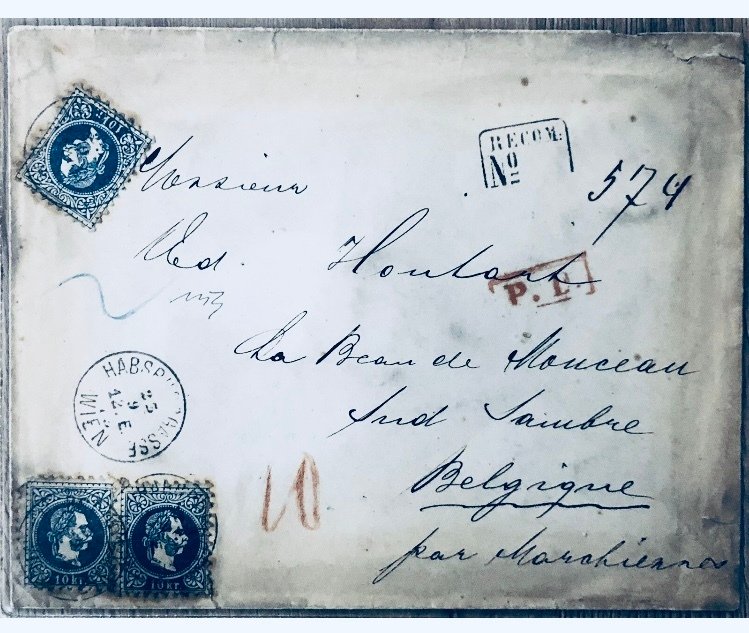 10 Kr
RECOM:
No
574
Monsieur
Ed. Houtart
P.D.
La Beau de Monceau
Sud Sambre
Belgique
par Marchiennes
HABSBURGGASSE
23
9
12.E.
WIEN
10
10 Kr
10 Kr